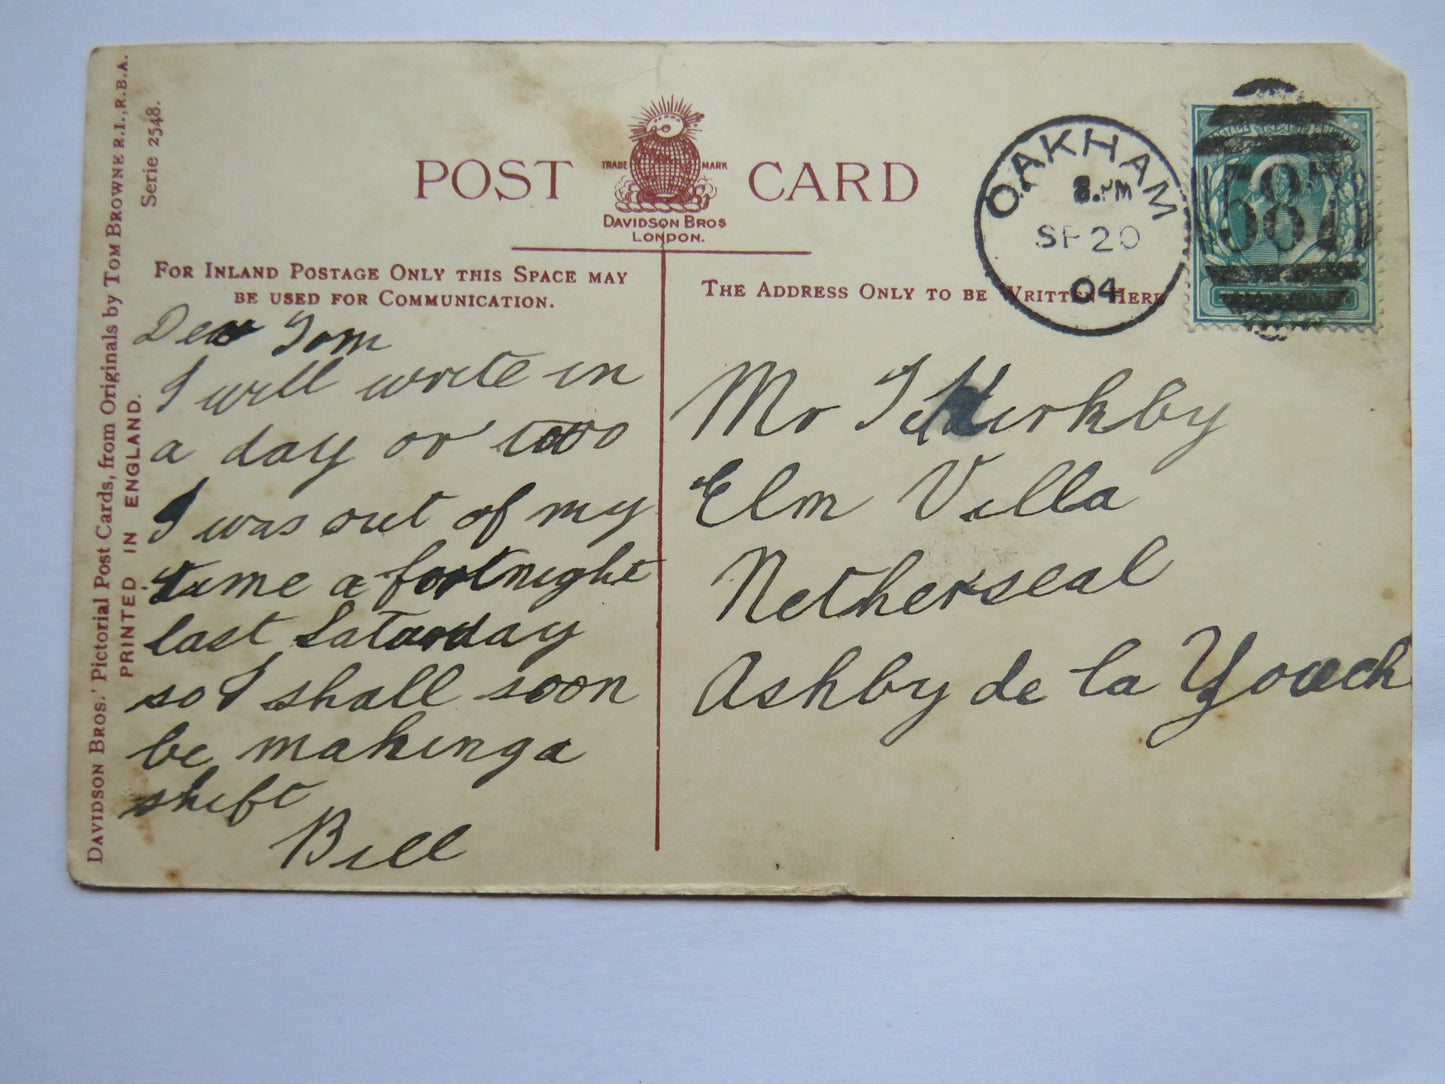 POST CARD
TRADE MARK
DAVIDSON BROS
LONDON.
FOR INLAND POSTAGE ONLY THIS SPACE MAY
BE USED FOR COMMUNICATION.
THE ADDRESS ONLY TO BE WRITTEN HERE
OAKHAM
8. PM
SP 20
04
587
DAVIDSON BROS.' Pictorial Post Cards, from Originals by TOM BROWNE R.I., R.B.A.
Serie 2548.
PRINTED IN ENGLAND.
Dear Tom
I will write in
a day or two
I was out of my
time a fortnight
last Saturday
so I shall soon
be making a
shift
Bill
Mr T Kirkby
Elm Villa
Netherseal
Ashby de la Zouch